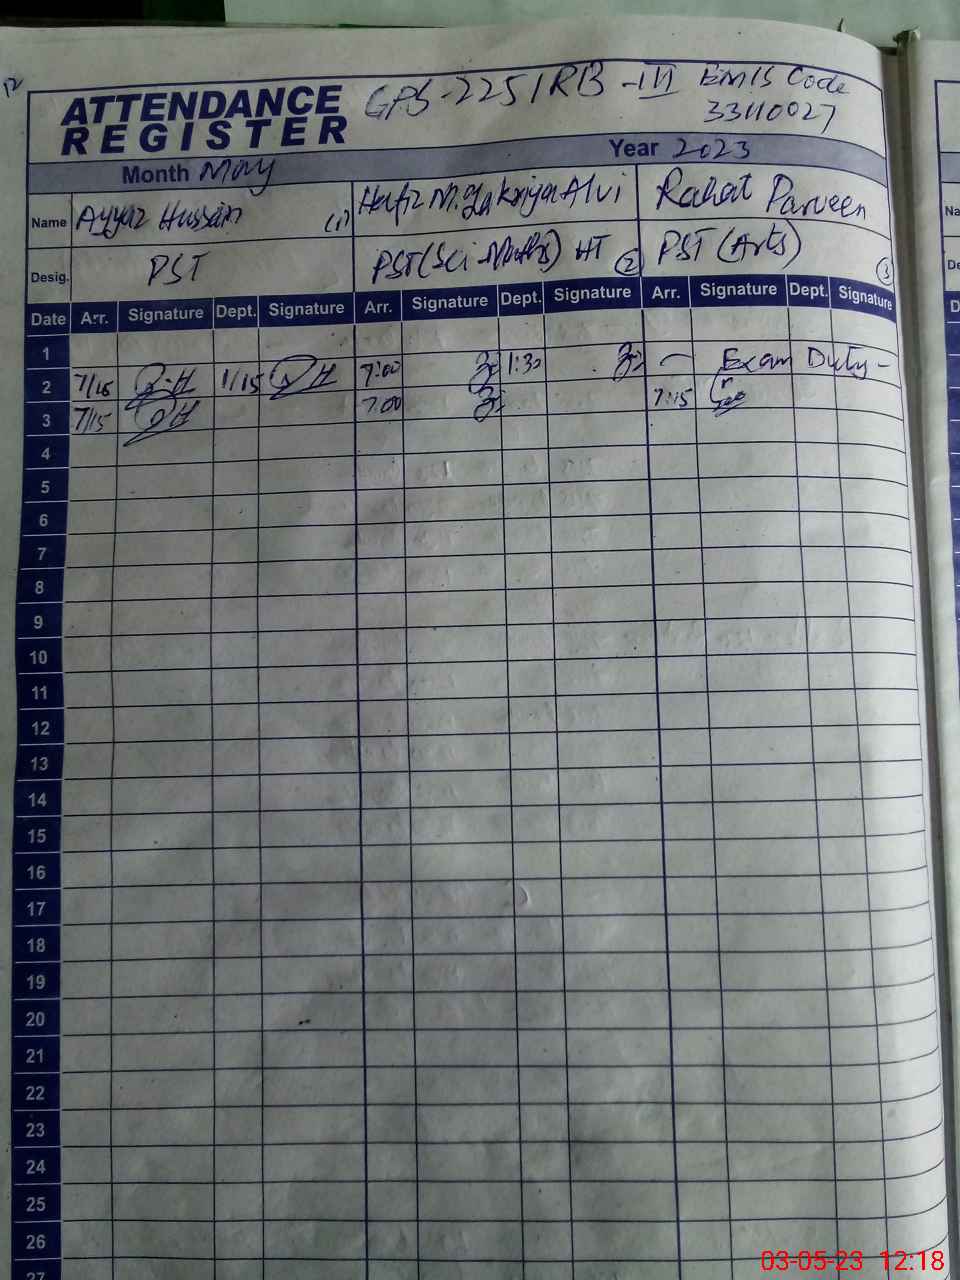 12
ATTENDANCE REGISTER
GPS-225/RB-III EMIS Code
33110027
Month May Year 2023
Name Ayyaz Hussain (1) Hafiz M. Zakriya Alvi Rahat Parveen
Desig. PST PST (Sci Maths) HT (2) PST (Arts) (3)
Date Arr. Signature Dept. Signature Arr. Signature Dept. Signature Arr. Signature Dept. Signature
1
2 7/15 1/15 7:00 1:30 — Exam Duty -
3 7/15 7:00 7:15
4
5
6
7
8
9
10
11
12
13
14
15
16
17
18
19
20
21
22
23
24
25
26
27
Na
De
D
03-05-23 12:18